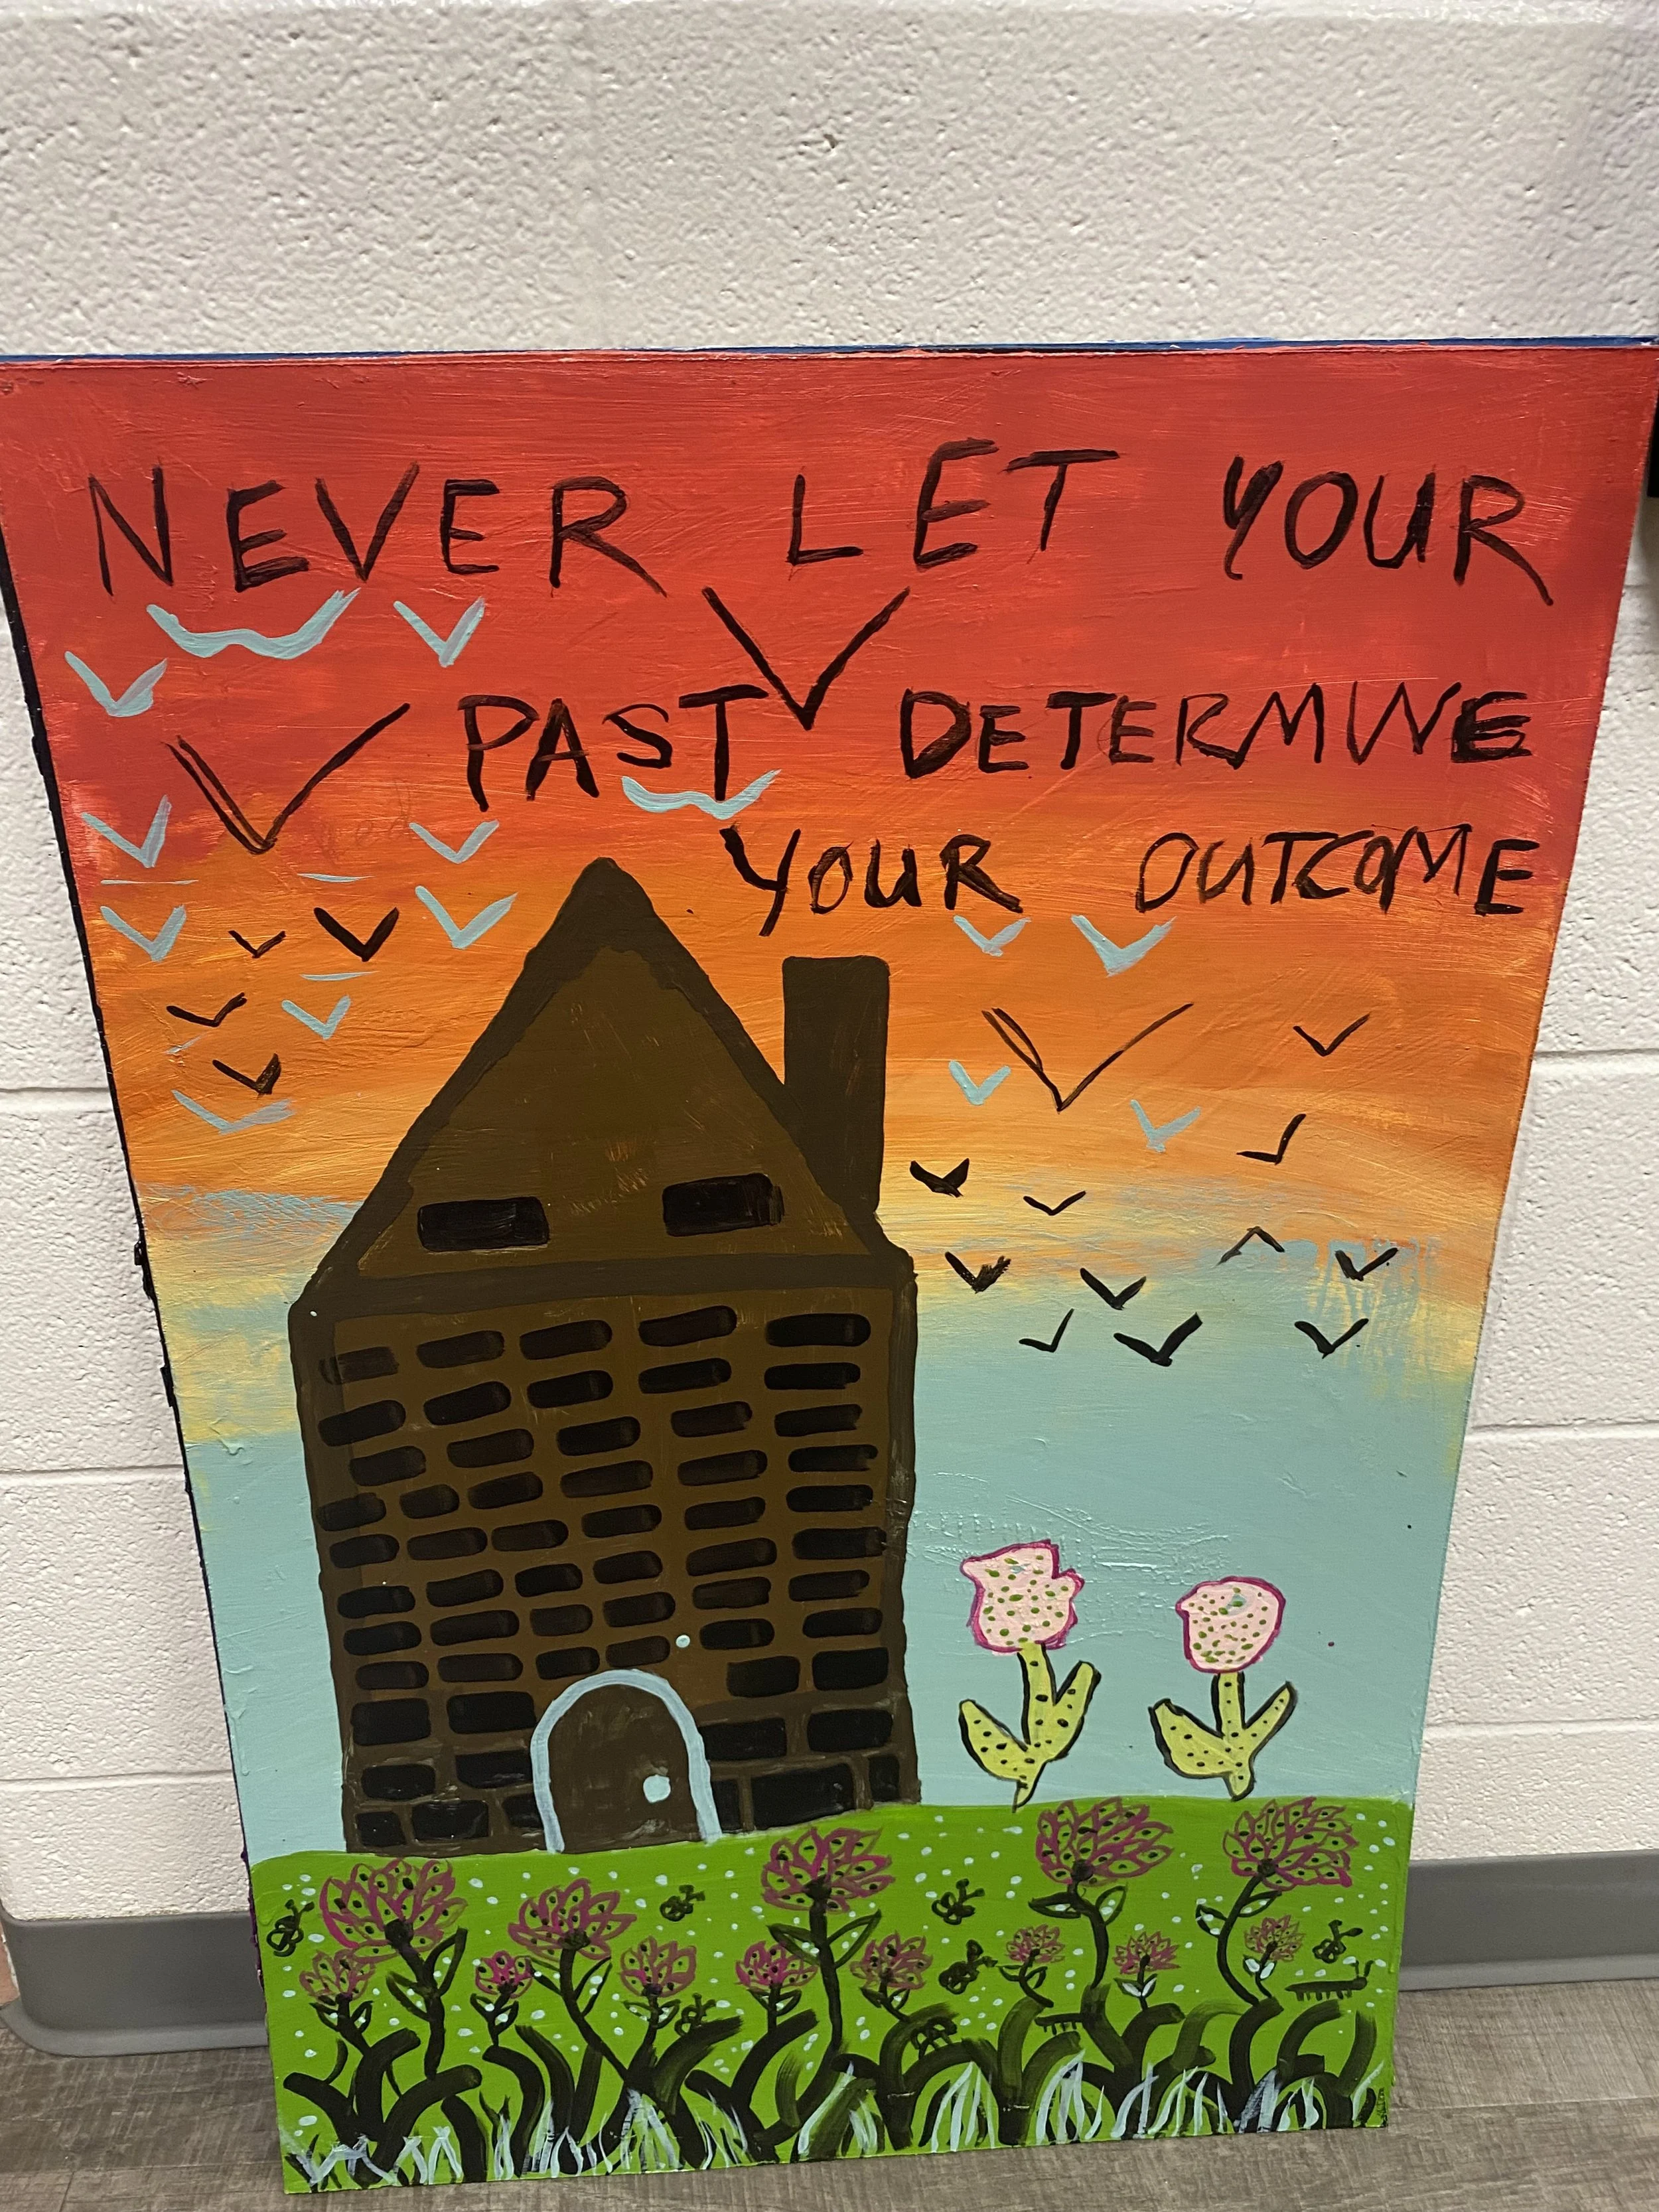 NEVER LET YOUR
PAST DETERMINE
YOUR OUTCOME